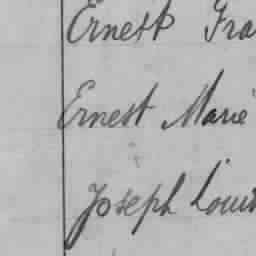 Ernest Fra
Ernest Marie
Joseph Louis